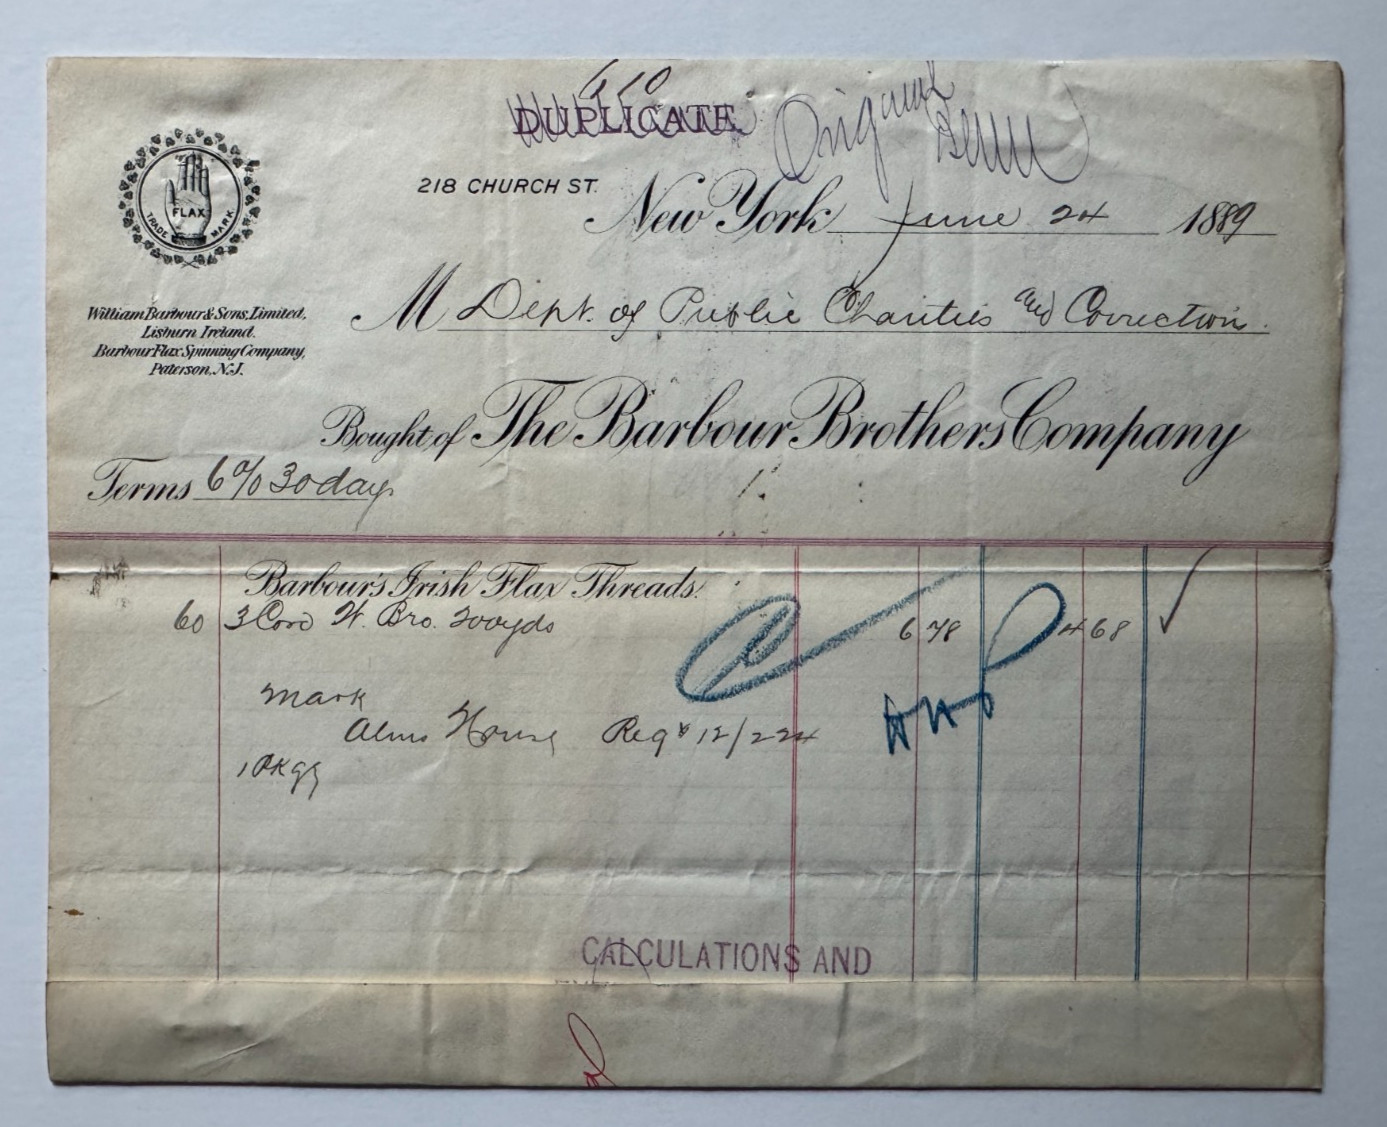 610
DUPLICATE
Original
218 CHURCH ST.
New York June 24 1889
FLAX
TRADE MARK
William Barbour & Sons, Limited,
Lisburn Ireland.
Barbour Flax Spinning Company,
Paterson, N.J.
M Dept. of Public Charities and Correction.
Bought of The Barbour Brothers Company
Terms 6% 30 days
Barbour's Irish Flax Threads.
60 3 Cord W. Bro. 200yds 6 78 4 68
Mark
Alms House Reqn 12/224
1 Pkgs
CALCULATIONS AND